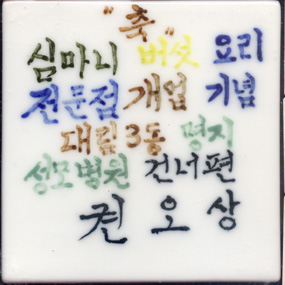 "축"
심마니 버섯 요리
전문점 개업 기념
대림3동 명지
성모병원 건너편
권오상